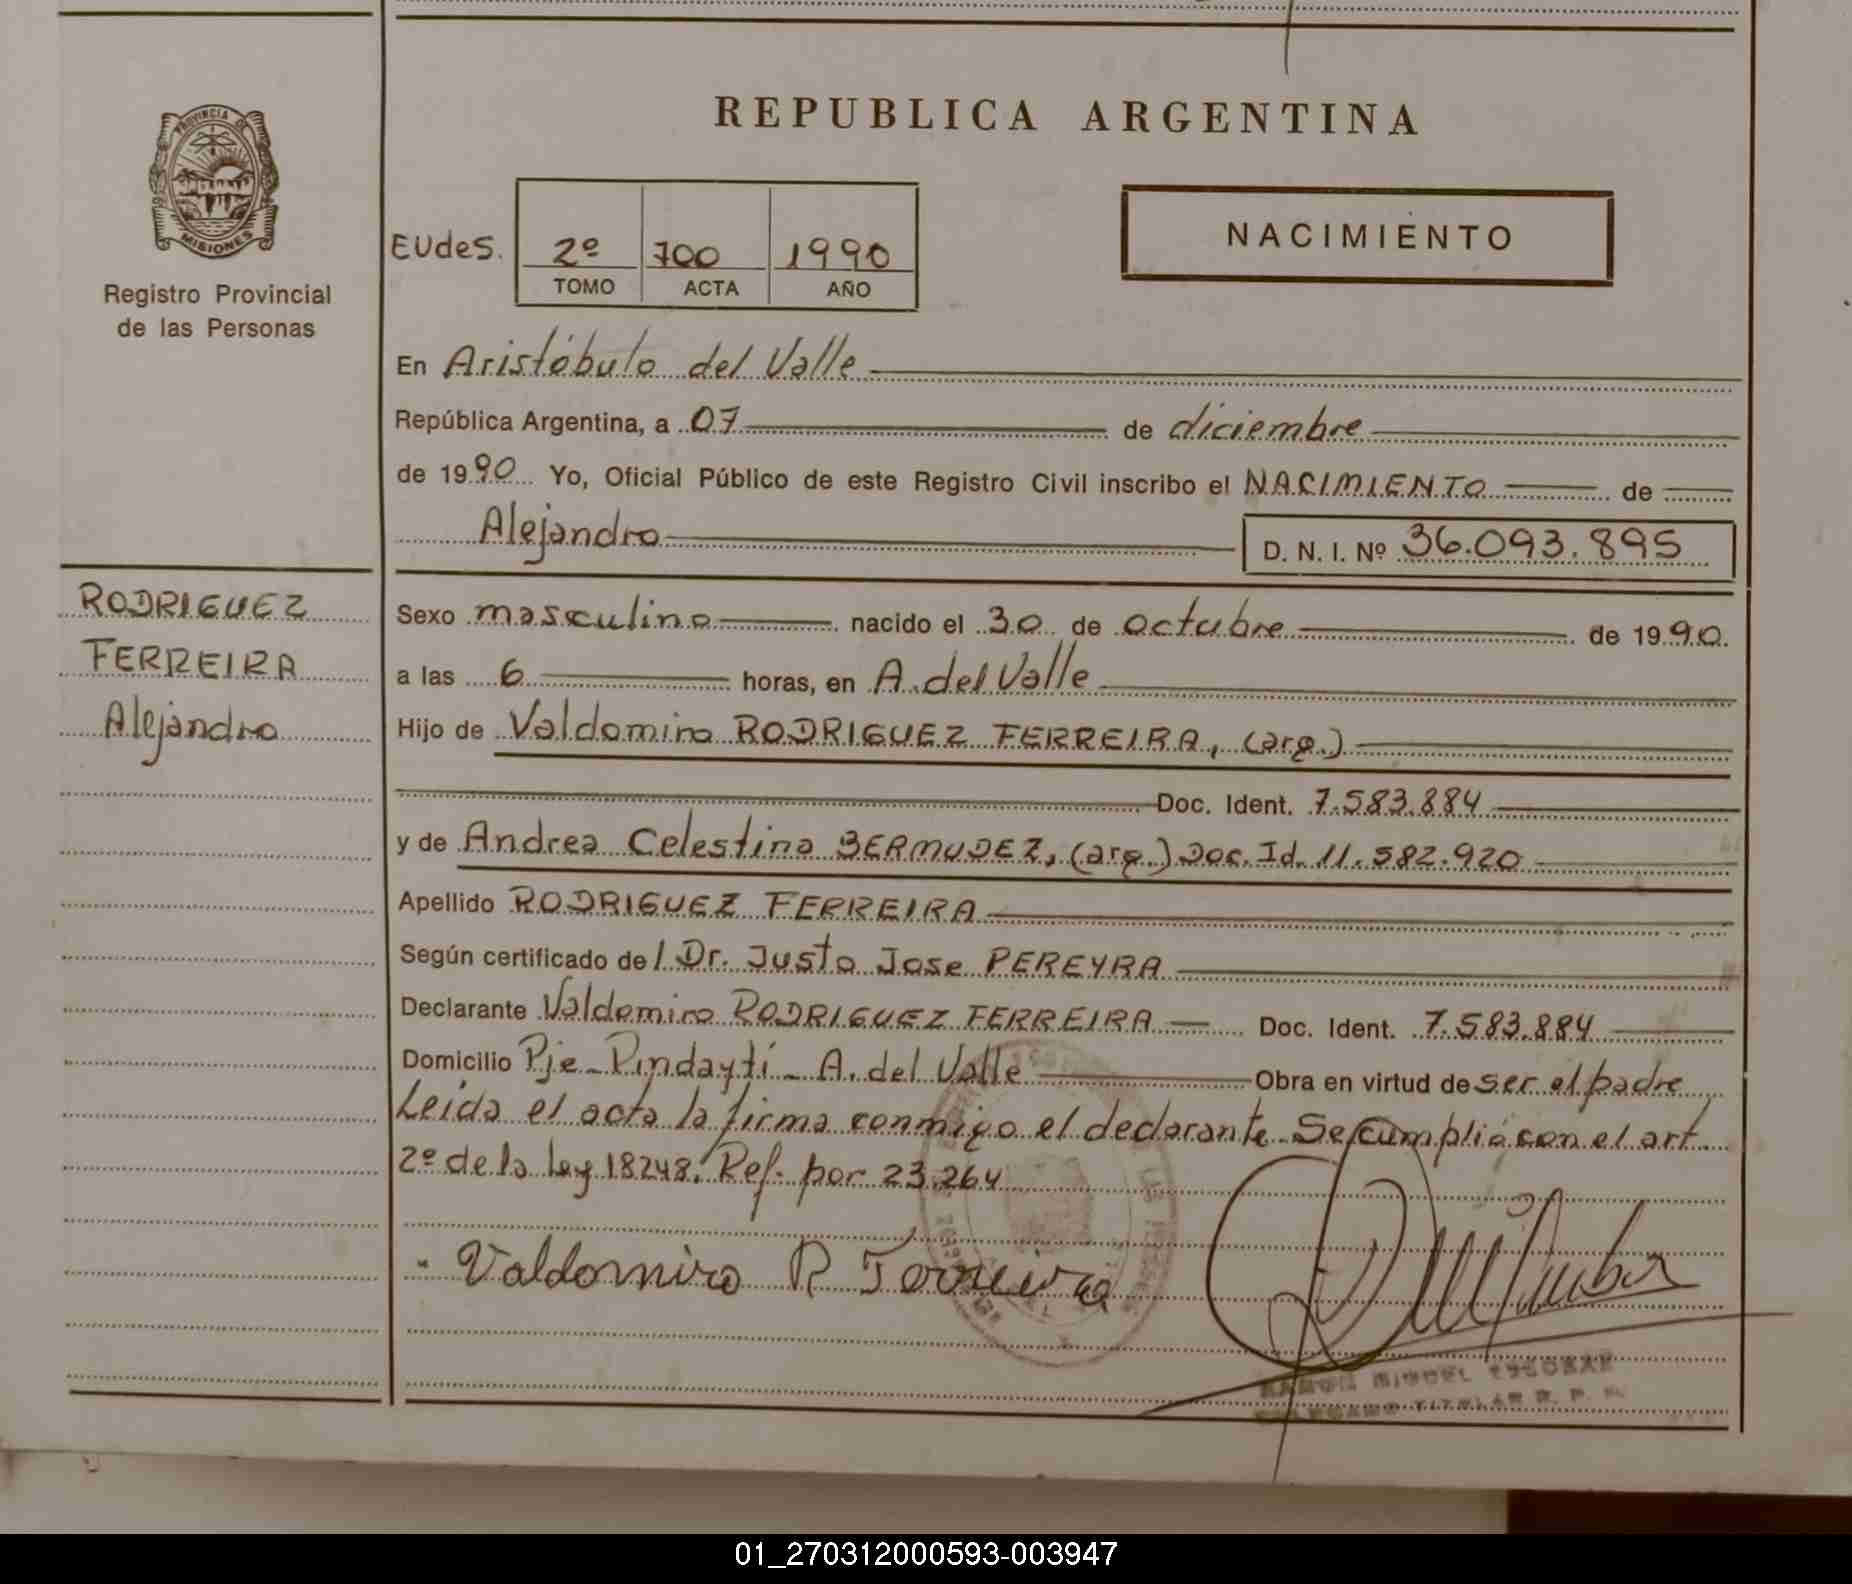 REPUBLICA ARGENTINA
PROVINCIA DE
MISIONES
Registro Provincial
de las Personas
EUdeS. 2º 700 1990
TOMO ACTA AÑO
NACIMIENTO
En Aristóbulo del Valle
República Argentina, a 07 de diciembre
de 1990 Yo, Oficial Público de este Registro Civil inscribo el NACIMIENTO de
Alejandro D. N. I. Nº 36.093.895
RODRIGUEZ
FERREIRA
Alejandro
Sexo masculino nacido el 30 de octubre de 1990.
a las 6 horas, en A. del Valle
Hijo de Valdomiro RODRIGUEZ FERREIRA, (arg.)
Doc. Ident. 7.583.884
y de Andrea Celestina BERMUDEZ, (arg.) Doc. Id. 11.582.920
Apellido RODRIGUEZ FERREIRA
Según certificado del Dr. Justo Jose PEREYRA
Declarante Valdomiro RODRIGUEZ FERREIRA Doc. Ident. 7.583.884
Domicilio Pje- Pindaytí - A. del Valle Obra en virtud de ser el padre
Leída el acta la firma conmigo el declarante. Se cumplió con el art.
2º de la ley 18248. Ref. por 23.264
Valdomiro R Ferreira
RAMON MIGUEL ESCOBAR
DELEGADO TITULAR R. P. P.
01_270312000593-003947